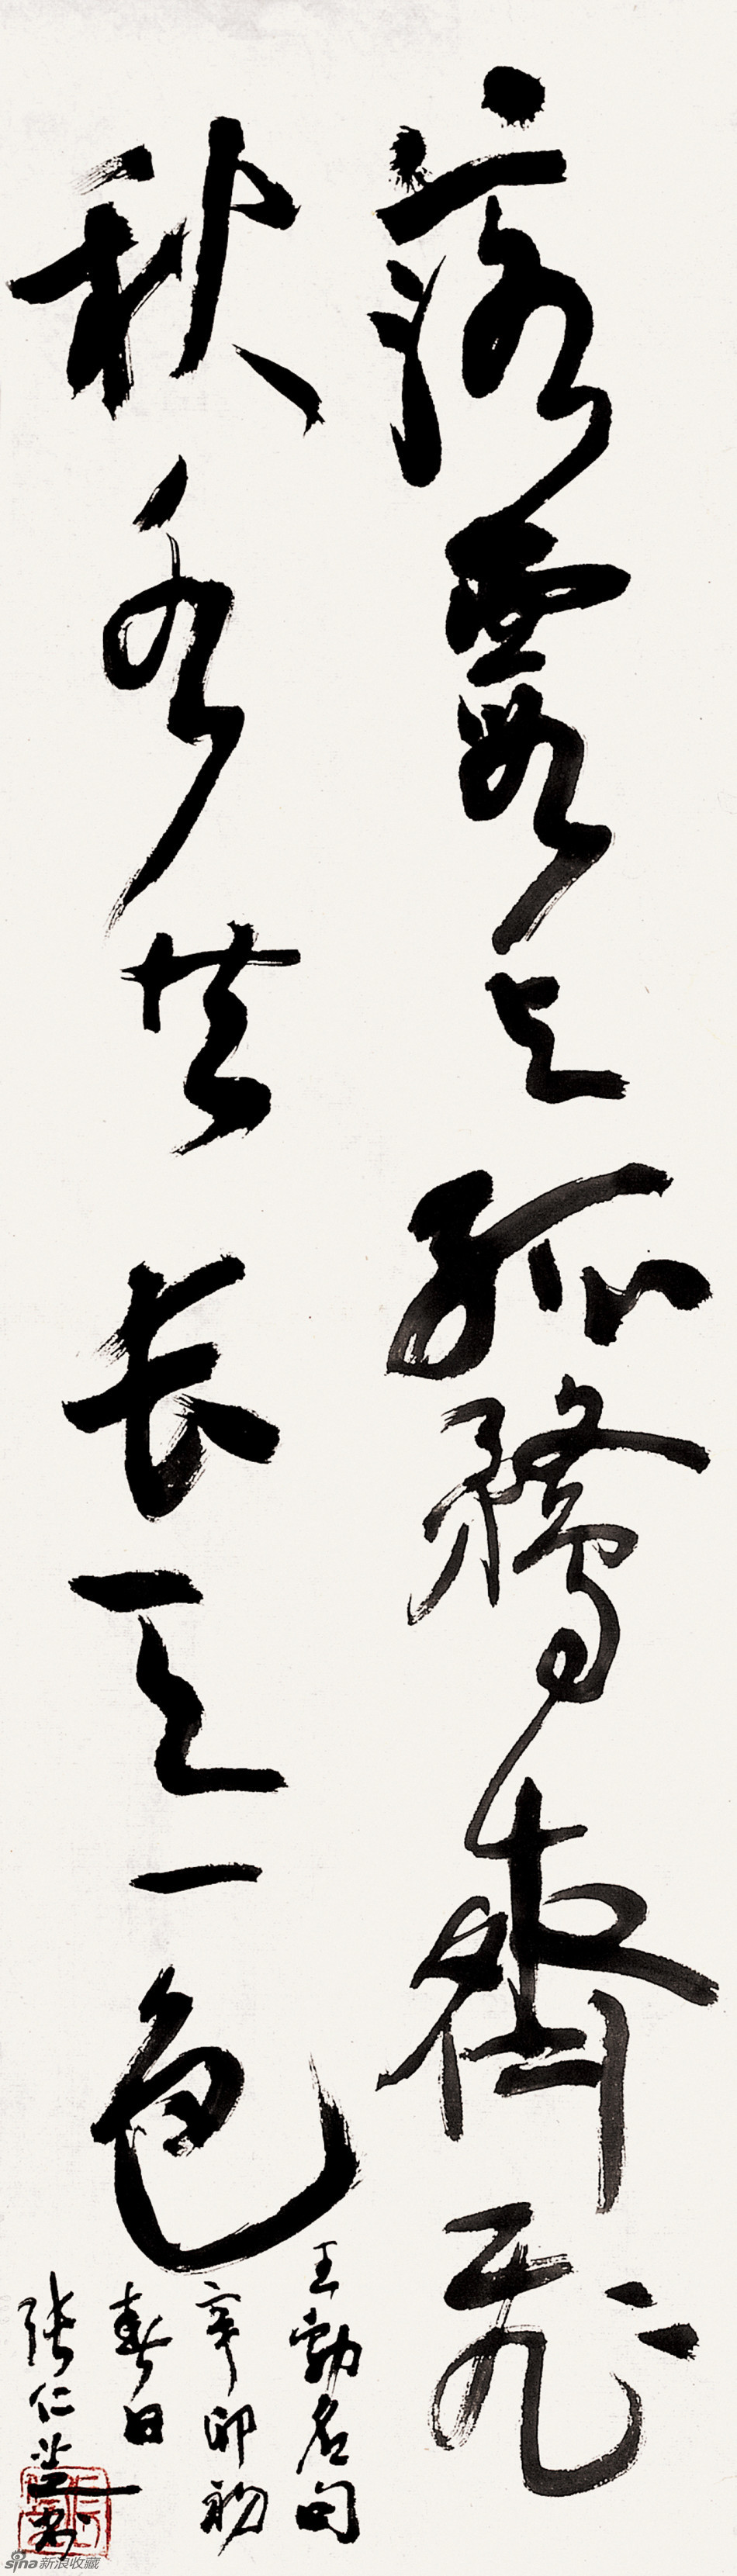 落霞与孤鶩齊飛
秋水共长天一色
王勃名句
辛卯初
春日
张仁芝书
sina 新浪收藏